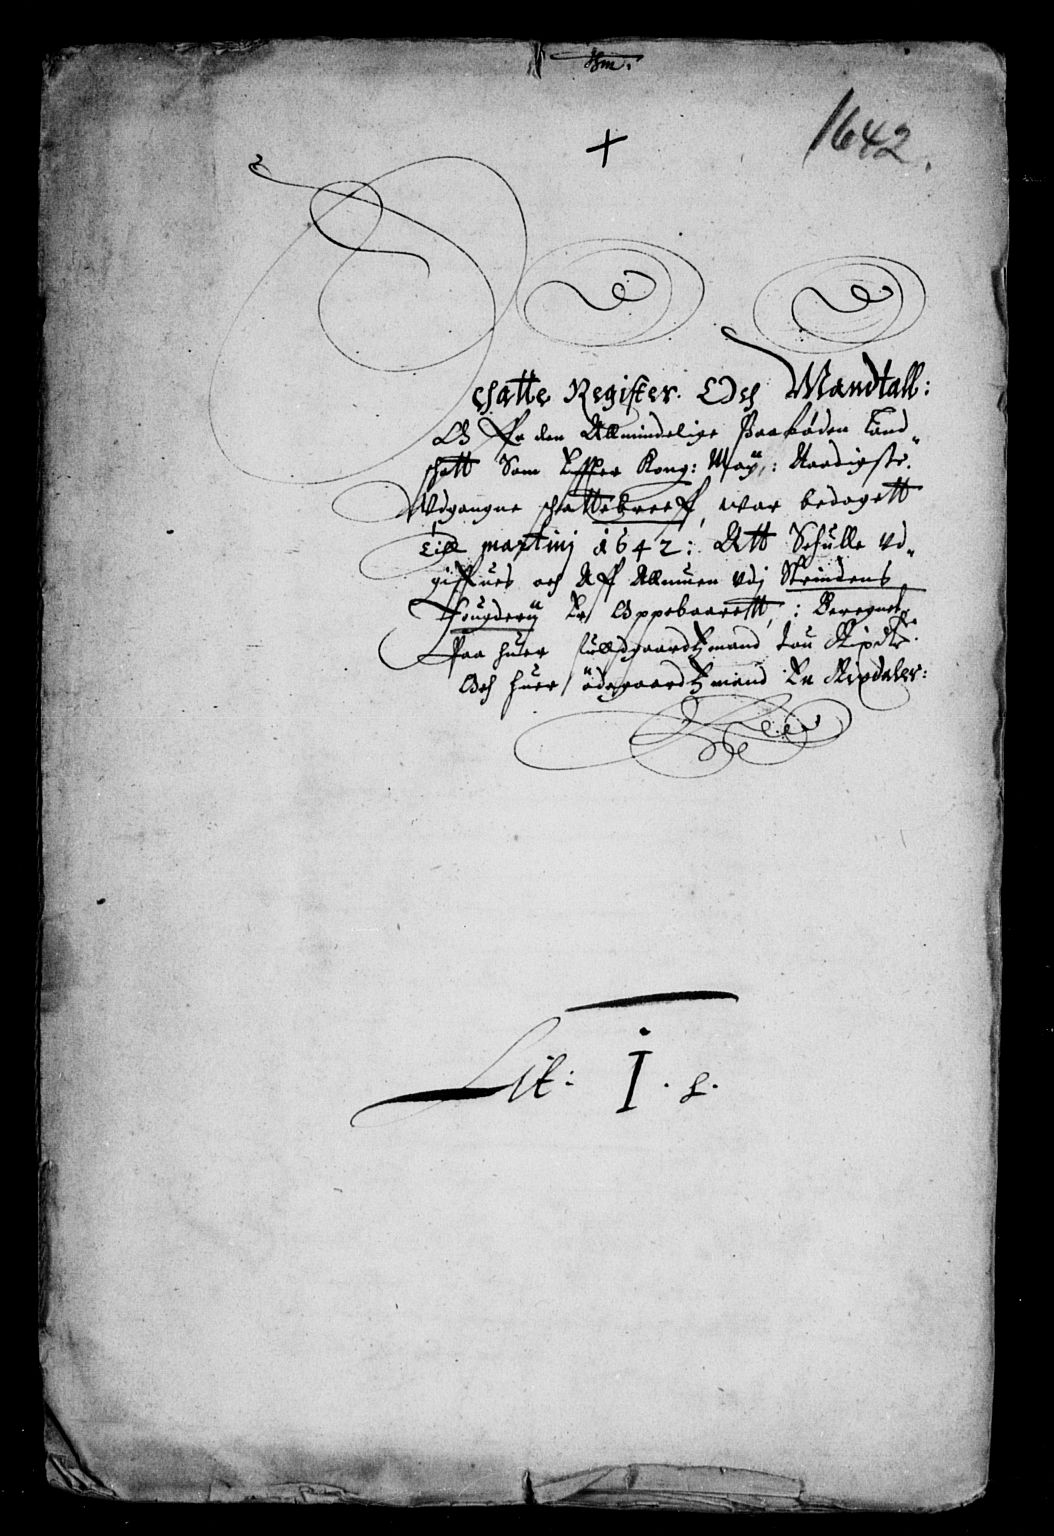 1642.
Schatte Register Och Mandtall:
Offr den Allmindelige Paabøden Land
schatt Som Effter Kong: May: Naadigste
Udgangne schattebreeff, war bedagett
till martinj 1642: Att Schulle ud
giffues och Aff Allmuen udj Strindens
Fougderij Er Oppebaarett,: Beregnet
Paa huer fulldgaardtzmand tou Rixdlr
Och huer ødegaardtzmand En Rixdaler:
Lit: I.